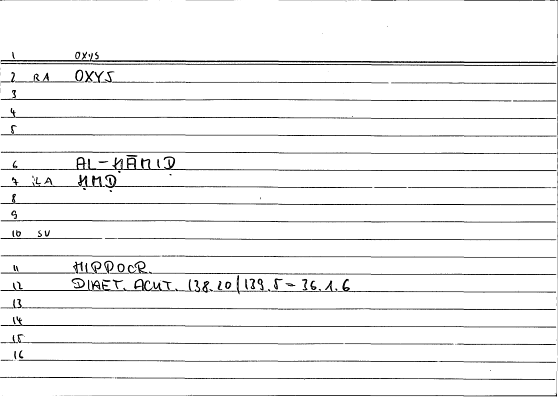 1 OXYS
2 RA OXYS
3
4
5
6 AL-ḤĀMIḌ
7 LA ḤMḌ
8
9
10 SU
11 HIPPOCR.
12 DIAET. ACUT. 138.20/139.5 = 36.1.6
13
14
15
16